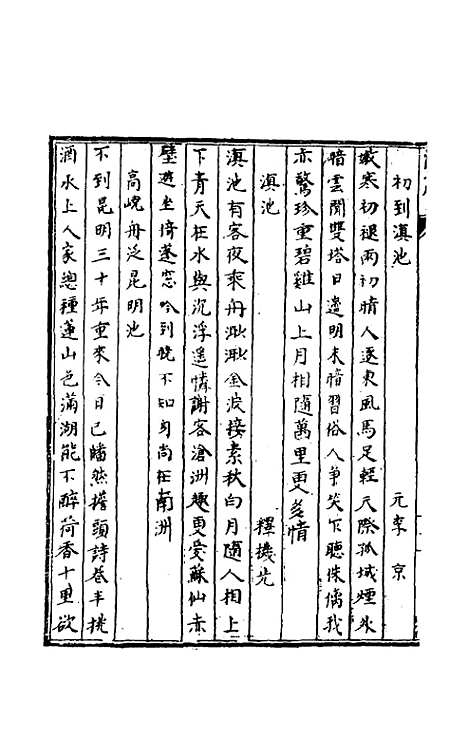 初到滇池　元李京
嫩寒初褪雨初晴人逐東風馬足輕天際孤城煙外
暗雲間雙塔日邊明未暗習俗人爭笑下聽侏儷我
亦驚珍重碧雞山上月相隨萬里更多情
滇池　釋機先
滇池有客夜乘舟渺渺金波接素秋白月隨人相上
下青天在水與沉浮遥憐謝客滄洲趣更愛蘇仙赤
壁遊坐倚蓬窓吟到曉不知身尚在南洲
高嶢舟泛昆明池
不到昆明三十年重來今日已皤然擔頭詩卷半挑
酒水上人家總種蓮山色滿湖能不醉荷香十里欲